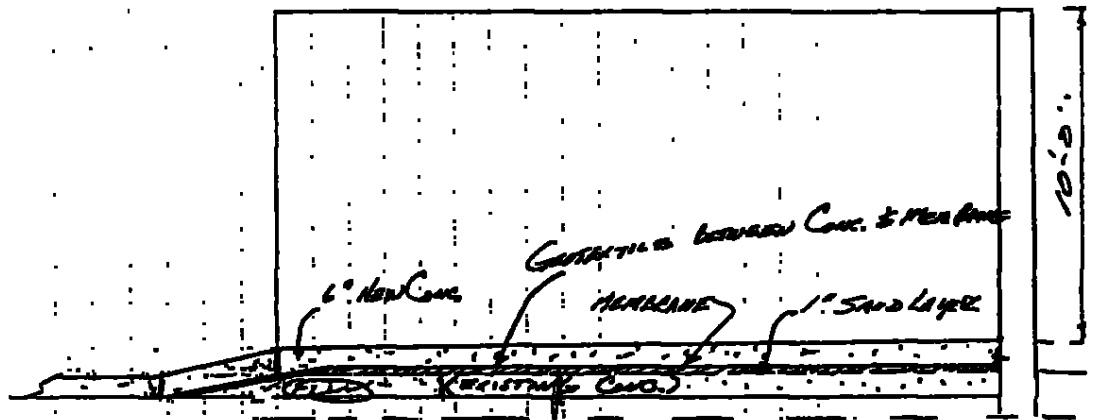 10'-0"
GEOTEXTILE BETWEEN CONC. & MEMBRANE
6" NEW CONC.
MEMBRANE
1" SAND LAYER
FILL
(EXISTING CONC.)